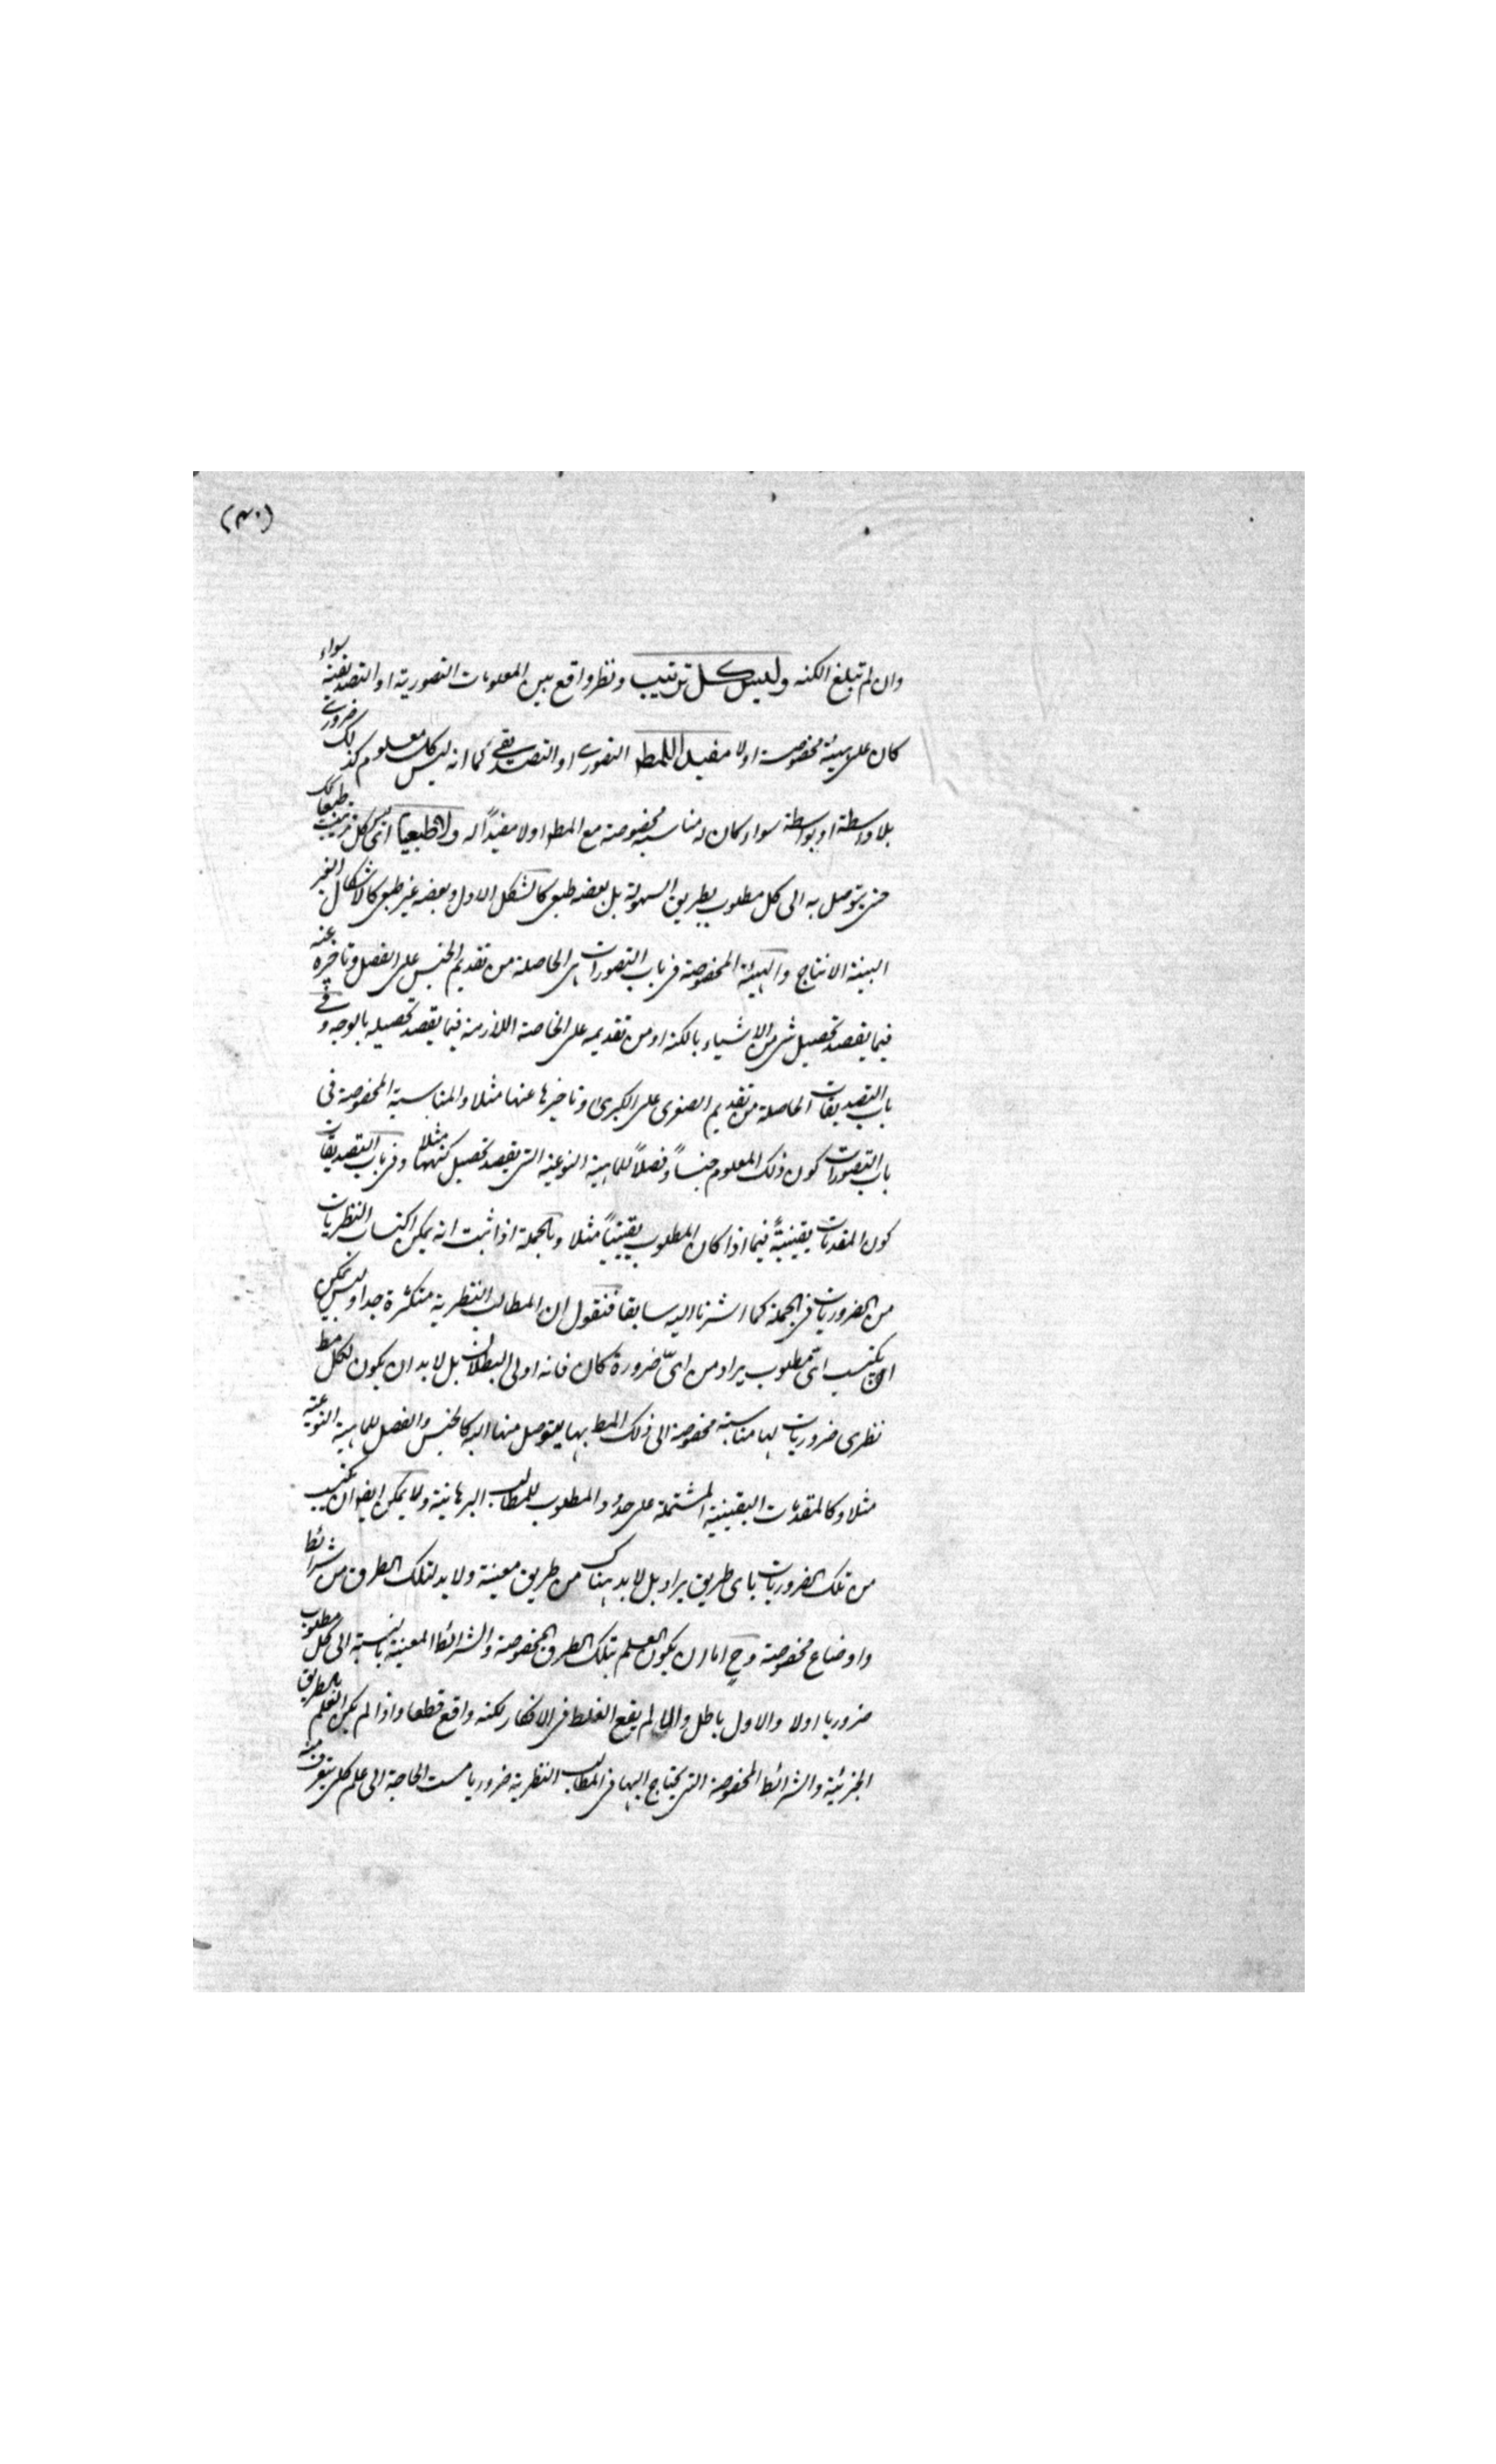 (٣٠)
وان لم تبلغ الكنه وليس كل ترتيب ونظر واقع بين المعلومات التصورية او التصديقية سواء
كان على هيئة مخصوصة اولا مفيدا للمط التصوري او التصديقي كما انه ليس كل معلوم ضروري كذلك
بلا واسطة او بواسطة سواء كان له مناسبة مخصوصة مع المط اولا مفيداً له ولا طبيعيا اى ليس كل ترتيب طبيعيا
حتى يتوصل به الى كل مطلوب بطريق السهولة بل بعضه طبيعي كالشكل الاول وبعضه غير طبيعي كالاشكال الغير
البينة الانتاج والهيئة المخصوصة في باب التصورات هي الحاصلة من تقديم الجنس على الفصل وتاخيره عنه
فيما يقصد تحصيل شئ من الاشياء بالكنه او من تقديمه على الخاصة اللازمة فيما يقصد تحصيله بالوجه وفي
باب التصديقات الحاصلة من تقديم الصغرى على الكبرى وتاخيرها عنها مثلا والمناسبة المخصوصة في
باب التصورات كون ذلك المعلوم جنساً وفصلاً للماهية النوعية التي يقصد تحصيل كنهها مثلا وفي باب التصديقات
كون المقدمات يقينيةً فيما اذا كان المطلوب يقينياً مثلا وبالجملة اذا ثبت انه يمكن اكتساب النظريات
من الضروريات في الجملة كما اشرنا اليه سابقا فنقول ان المطالب النظرية متكثرة جدا وليس يمكن
ان يكتسب اى مطلوب يراد من اىّ ضرورة كان فانه اولى البطلان بل لابد ان يكون لكل مط
نظرى ضروريات لها مناسبة مخصوصة الى ذلك المط بها يتوصل منها اليه كالجنس والفصل للماهية النوعية
مثلا وكالمقدمات اليقينية المشتملة على حدود المطلوب للمطالب البرهانية ولا يمكن ايضا ان يكتسب
من تلك الضروريات باى طريق يراد بل لابد هناك من طريق معينة ولا بد لتلك الطرق من شرائط
واوضاع مخصوصة وح اما ان يكون العلم بتلك الطرق المخصوصة والشرائط المعينة بالنسبة الى كل مطلوب
ضروريا اولا والاول باطل والا لم يقع الغلط في الافكار لكنه واقع قطعا واذا لم يكن العلم بالطريق
الجزئية والشرائط المخصوصة التي يحتاج اليها في المطالب النظرية ضروريا مست الحاجة الى علم كلى يتعرف منه